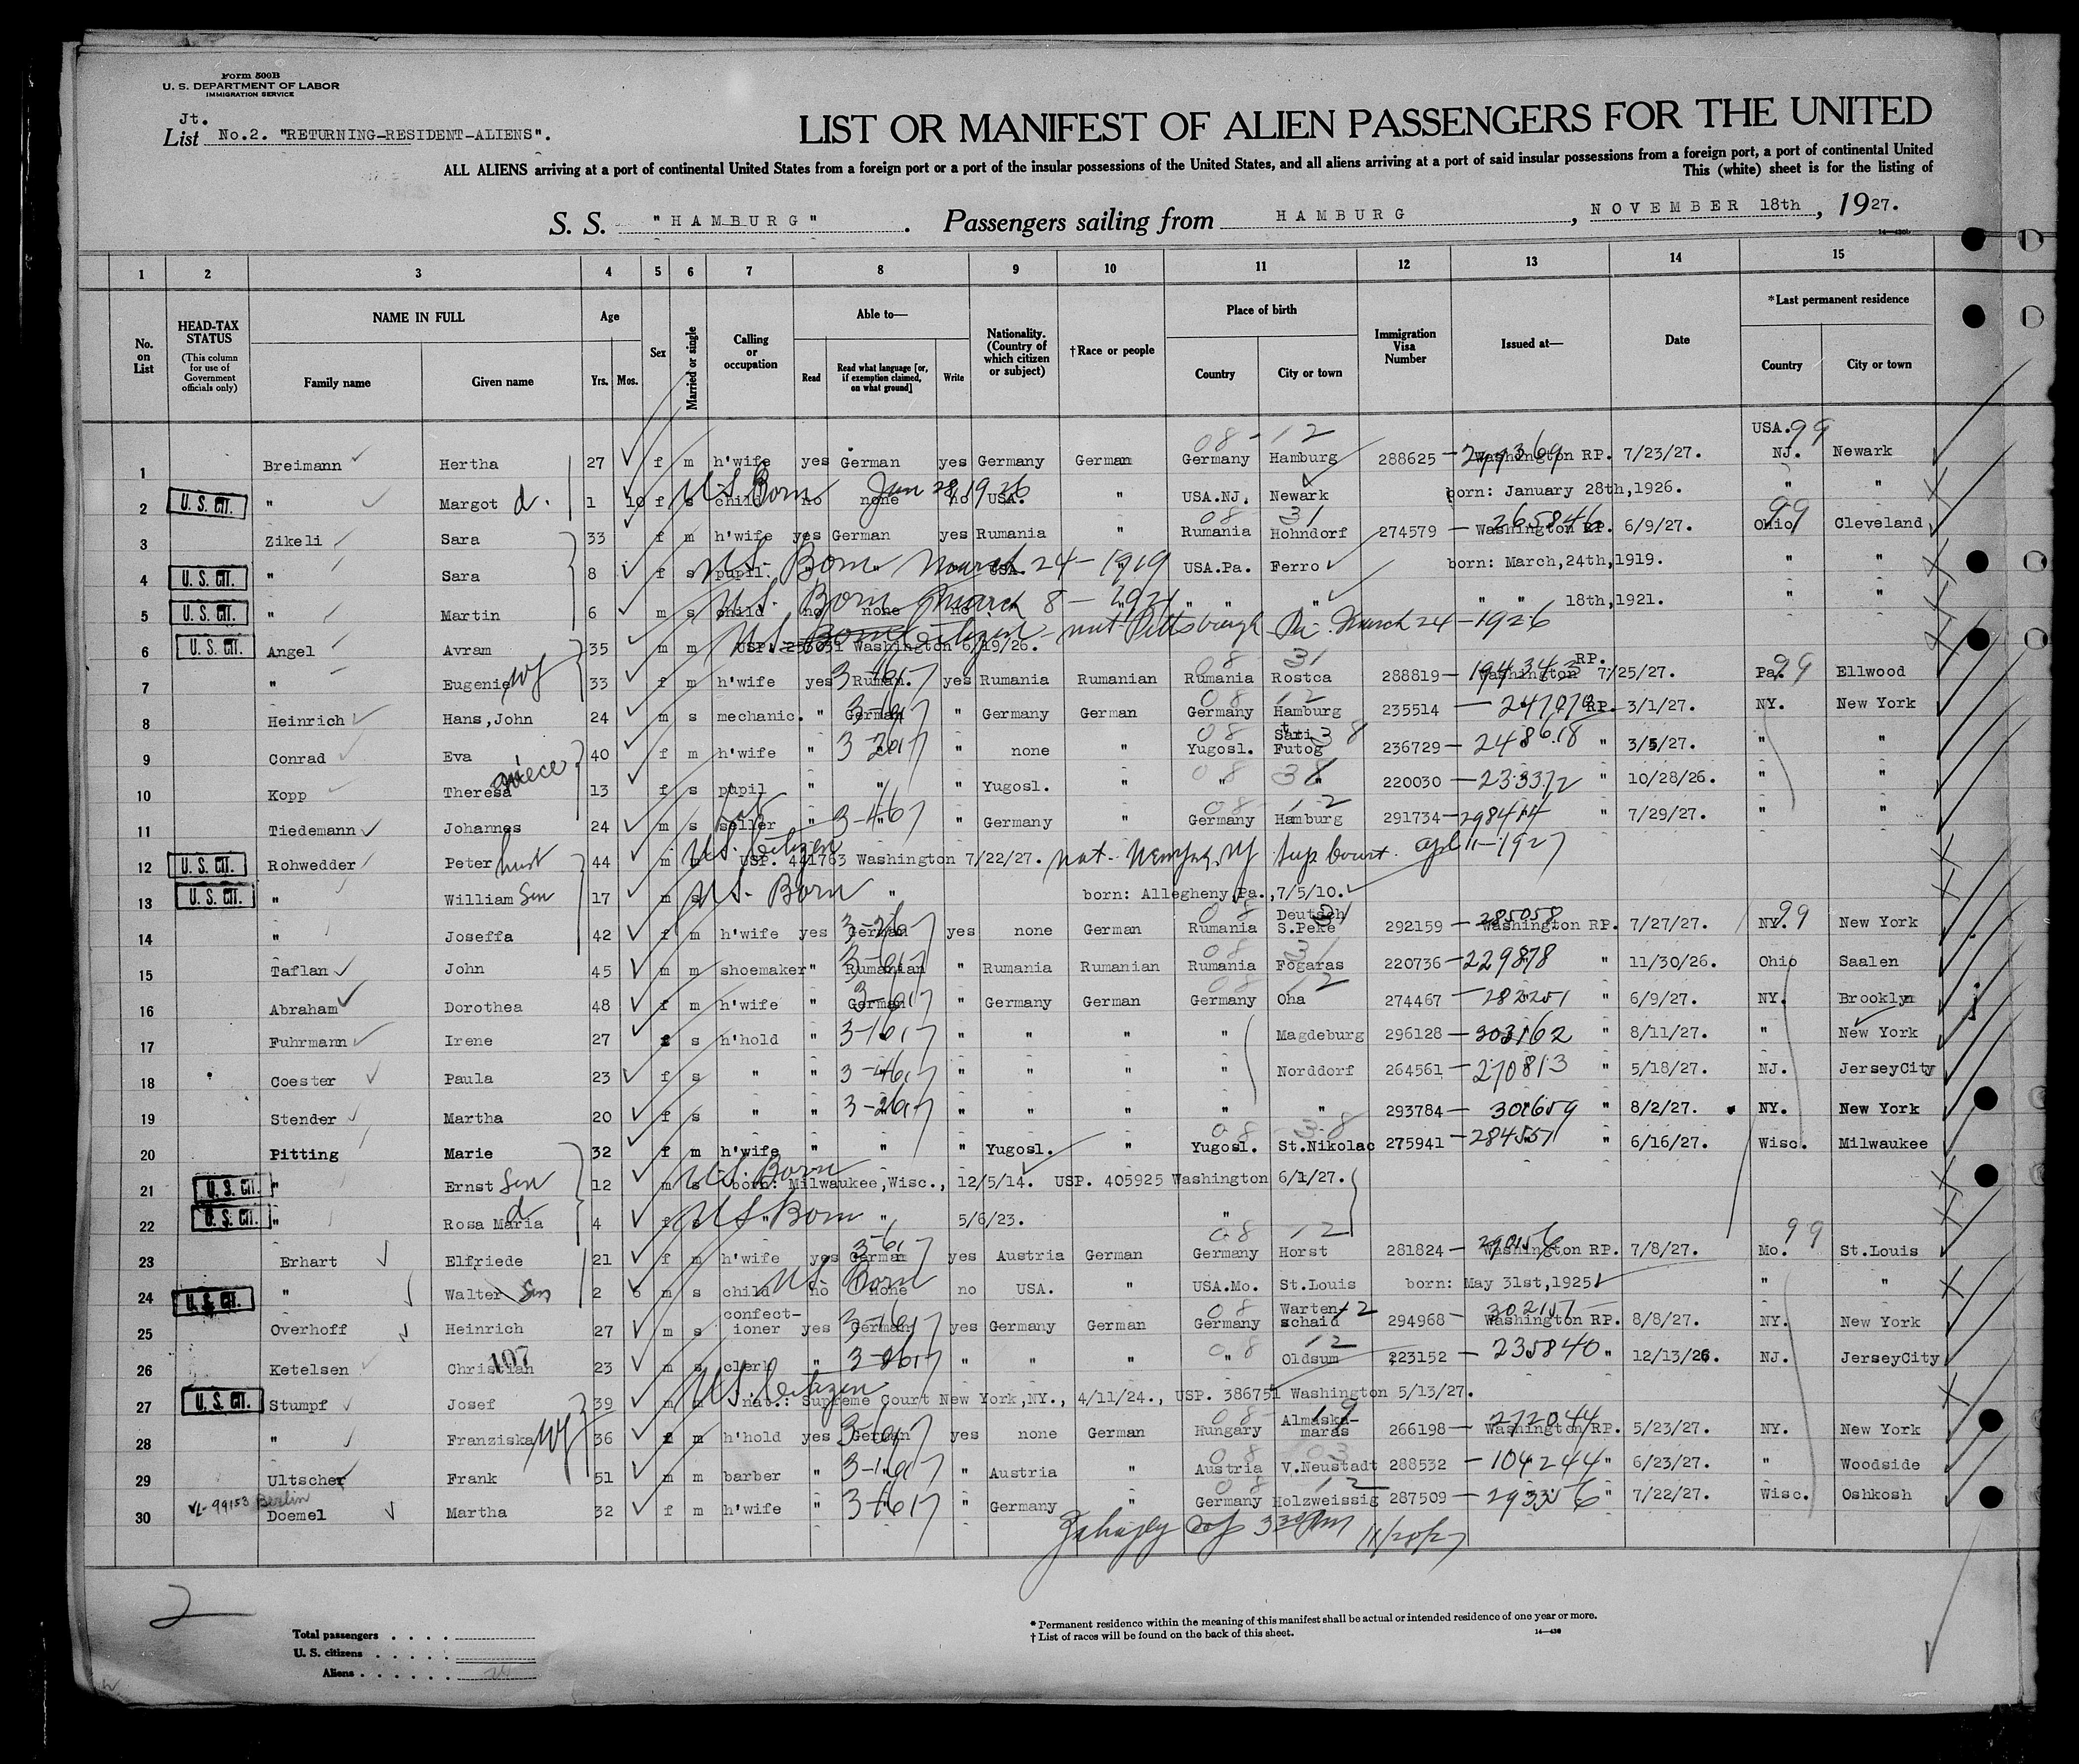 Form 500B
U. S. DEPARTMENT OF LABOR
IMMIGRATION SERVICE
Jt.
List No.2. "RETURNING-RESIDENT-ALIENS".
LIST OR MANIFEST OF ALIEN PASSENGERS FOR THE UNITED
ALL ALIENS arriving at a port of continental United States from a foreign port or a port of the insular possessions of the United States, and all aliens arriving at a port of said insular possessions from a foreign port, a port of continental United
This (white) sheet is for the listing of
S. S. "HAMBURG". Passengers sailing from HAMBURG, NOVEMBER 18th, 1927.
1 2 3 4 5 6 7 8 9 10 11 12 13 14 15
No. on List
HEAD-TAX STATUS (This column for use of Government officials only)
NAME IN FULL Family name Given name
Age Yrs. Mos.
Sex
Married or single
Calling or occupation
Able to— Read Read what language [or, if exemption claimed, on what ground] Write
Nationality. (Country of which citizen or subject)
†Race or people
Place of birth Country City or town
Immigration Visa Number
Issued at—
Date
*Last permanent residence Country City or town
1 Breimann Hertha 27 f m h'wife yes German yes Germany German Germany Hamburg 288625 Washington RP. 7/23/27. USA. NJ. Newark
2 U. S. CIT. " Margot d. 1 10 f s child no none no USA. " USA.NJ. Newark born: January 28th,1926. " "
US Born Jan 28, 1926
3 Zikeli Sara 33 f m h'wife yes German yes Rumania " Rumania Hohndorf 274579 Washington RP. 6/9/27. Ohio Cleveland
4 U. S. CIT. " Sara 8 f s pupil. " " USA. " USA.Pa. Ferro born: March,24th,1919. " "
US. Born March 24-1919
5 U. S. CIT. " Martin 6 m s child no none no " " " " " " 18th,1921. " "
US. Born March 8-1921
6 U. S. CIT. Angel Avram 35 m m USP. Washington 6/19/26.
US. Citizen - nat. Pittsburgh Pa. March 24-1926
7 " Eugenie wf 33 f m h'wife yes Ruman. yes Rumania Rumanian Rumania Rostca 288819 Washington RP. 7/25/27. Pa. Ellwood
8 Heinrich Hans,John 24 m s mechanic. " German " Germany German Germany Hamburg 235514 RP. 3/1/27. NY. New York
9 Conrad Eva 40 f m h'wife " " " none " Yugosl. Futog 236729 248618 " 3/5/27. " "
10 Kopp Theresa niece 13 f s pupil " " " Yugosl. " " " 220030 " 10/28/26. " "
11 Tiedemann Johannes 24 m s seller " " " Germany " Germany Hamburg 291734 " 7/29/27. " "
12 U. S. CIT. Rohwedder Peter hust 44 m m USP. 441763 Washington 7/22/27.
US. Citizen nat. New York, NY Sup Court. Apl 11-1927
13 U. S. CIT. " William Son 17 m s " born: Allegheny,Pa.,7/5/10.
US. Born
14 " Joseffa 42 f m h'wife yes German yes none German Rumania Deutsch S.Peke 292159 285058 Washington RP. 7/27/27. NY. New York
15 Taflan John 45 m m shoemaker " Rumanian " Rumania Rumanian Rumania Fogaras 220736 229878 " 11/30/26. Ohio Saalen
16 Abraham Dorothea 48 f m h'wife " German " Germany German Germany Oha 274467 " 6/9/27. NY. Brooklyn
17 Fuhrmann Irene 27 f s h'hold " " " " " " Magdeburg 296128 303162 " 8/11/27. " New York
18 Coester Paula 23 f s " " " " " " " Norddorf 264561 270813 " 5/18/27. NJ. JerseyCity
19 Stender Martha 20 f s " " " " " " " " 293784 301659 " 8/2/27. NY. New York
20 Pitting Marie 32 f m h'wife " " " Yugosl. " Yugosl. St.Nikolac 275941 284551 " 6/16/27. Wisc. Milwaukee
21 U. S. CIT. " Ernst Son 12 m s born: Milwaukee,Wisc., 12/5/14. USP. 405925 Washington 6/1/27.
US. Born
22 U. S. CIT. " Rosa Maria d 4 f s " " 5/6/23. "
US Born
23 Erhart Elfriede 21 f m h'wife yes German yes Austria German Germany Horst 281824 290156 Washington RP. 7/8/27. Mo. St.Louis
24 U. S. CIT. " Walter Son 2 6 m s child no none no USA. " USA.Mo. St.Louis born: May 31st,1925. " "
US. Born
25 Overhoff Heinrich 27 m s confect-ioner yes German yes Germany German Germany Wartenschaid 294968 302151 Washington RP. 8/8/27. NY. New York
26 Ketelsen Christian 107 23 m s clerk " " " " " Oldsum 223152 235840 " 12/13/26. NJ. JerseyCity
27 U. S. CIT. Stumpf Josef 39 m m nat.: Supreme Court New York,NY., 4/11/24., USP. 386751 Washington 5/13/27.
US. Citizen
28 " Franziska wf 36 f m h'hold yes German yes none German Hungary Almaskamaras 266198 272044 Washington RP. 5/23/27. NY. New York
29 Ultscher Frank 51 m m barber " " " Austria " Austria V.Neustadt 288532 104244 " 6/23/27. " Woodside
30 VL-99153 Berlin Doemel Martha 32 f m h'wife " " " Germany " Germany Holzweissig 287509 293356 " 7/22/27. Wisc. Oshkosh
2
Total passengers
U. S. citizens
Aliens
* Permanent residence within the meaning of this manifest shall be actual or intended residence of one year or more.
† List of races will be found on the back of this sheet.
14—430